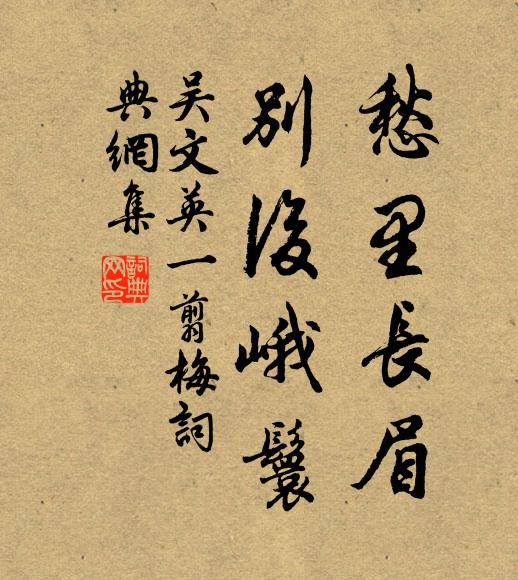 愁里長眉
別後峨鬟
吳文英一翦梅詞
典網集
詞典網印